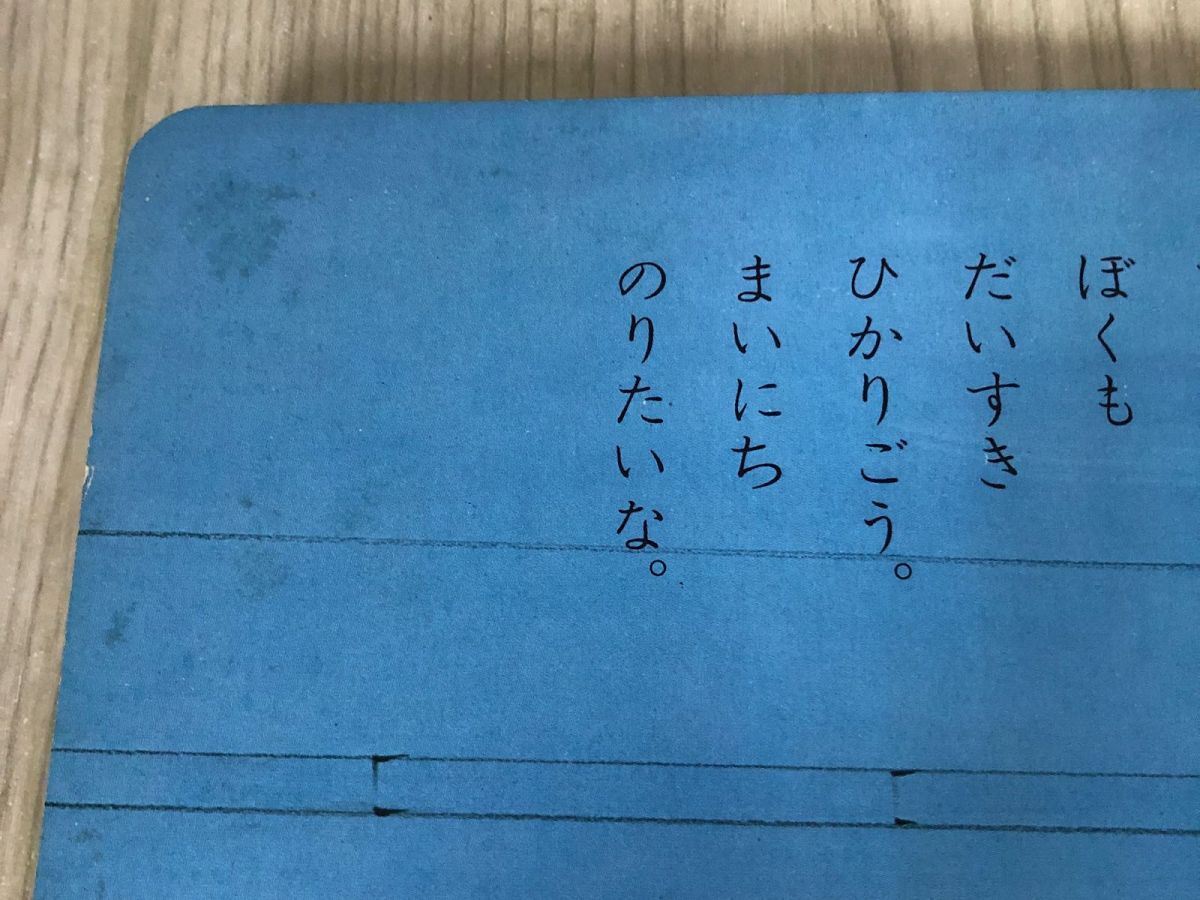 ぼくも
だいすき
ひかりごう。
まいにち
のりたいな。